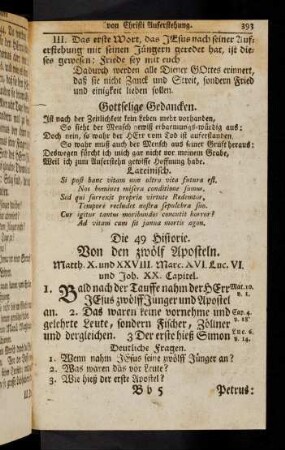 von Christi Auferstehung. 393
III. Das erste Wort, das JEsus nach seiner Auf-
erstehung mit seinen Jüngern geredet hat, ist die-
ses gewesen: Friede sey mit euch
Dadurch werden alle Diener GOttes erinnert,
daß sie nicht Zanck und Streit, sondern Fried
und einigkeit lieben sollen.
Gottselige Gedancken.
Ist nach der Zeitlichkeit kein Leben mehr vorhanden,
So sieht der Mensch gewiß erbarmungs-würdig aus:
Doch nein, so wahr der HErr vom Tod ist auferstanden,
So wahr kömt auch der Mensch aus seiner Gruft heraus:
Deswegen fürcht ich mich gar nicht vor meinem Grabe,
Weil ich zum Auferstehn gewisse Hoffnung habe.
Lateinisch.
Si post hanc vitam non ultra vita futura est,
Nos homines misera conditione sumus,
Sed qui surrexit propria virtute Redemtor,
Tempore recludet nostra sepulchra suo.
Cur igitur tantus moribundos concutit horror?
Ad vitam cum sit janua mortis agon.
Die 49 Historie.
Von den zwölf Aposteln.
Matth. X. und XXVIII. Marc. XVI. Luc. VI.
und Joh. XX. Capitel.
1. Bald nach der Tauffe nahm der HErr Mat. 10.
JEsus zwölff Jünger und Apostel v. 1.
an. 2. Das waren keine vornehme und Cor. 4.
gelehrte Leute, sondern Fischer, Zöllner v. 18
und dergleichen. 3 Der erste hieß Simon Luc. 6.
v. 14.
Deutliche Fragen.
1. Wenn nahm JEsus seine zwölff Jünger an?
2. Was waren das vor Leute?
3. Wie hieß der erste Apostel?
B b 5 Petrus: